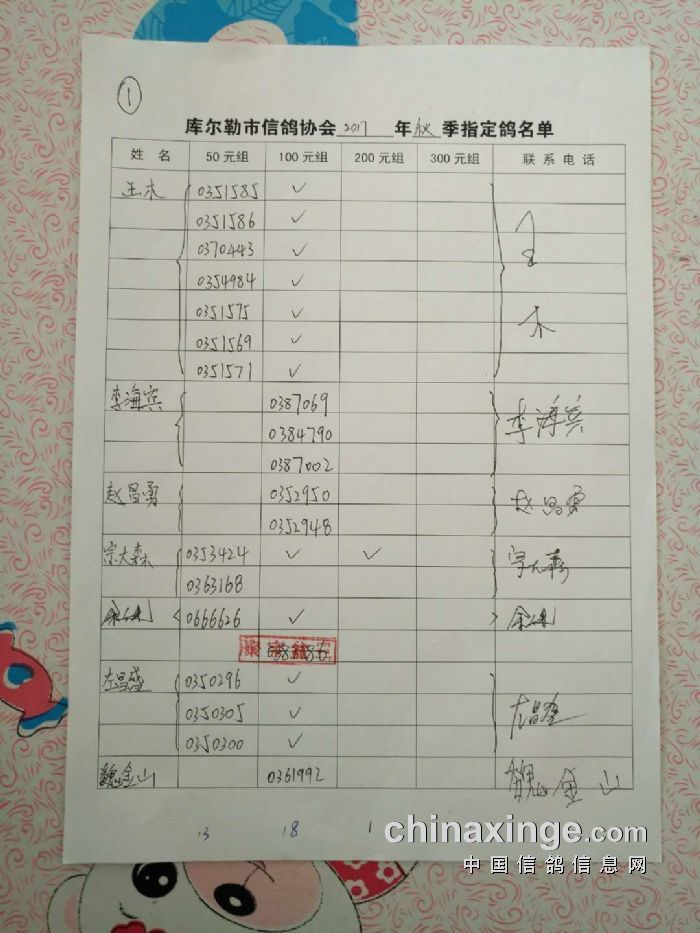 1
库尔勒市信鸽协会 2017 年 秋 季指定鸽名单
姓 名 50元组 100元组 200元组 300元组 联系电话
王木 0351585 ✓
0351586 ✓
0370443 ✓
0354984 ✓
0351575 ✓
0351569 ✓
0351571 ✓
李海宾 0387069 李海宾
0384790
0387002
赵昌勇 0352950 赵昌勇
0352948
宗大森 0353424 ✓ ✓ 宗大森
0363168
0666626 ✓
左昌盛 0350296 ✓ 左昌盛
0350305 ✓
0350300 ✓
魏金山 0361992 魏金山
13 18 1
chinaxinge.com
中国信鸽信息网